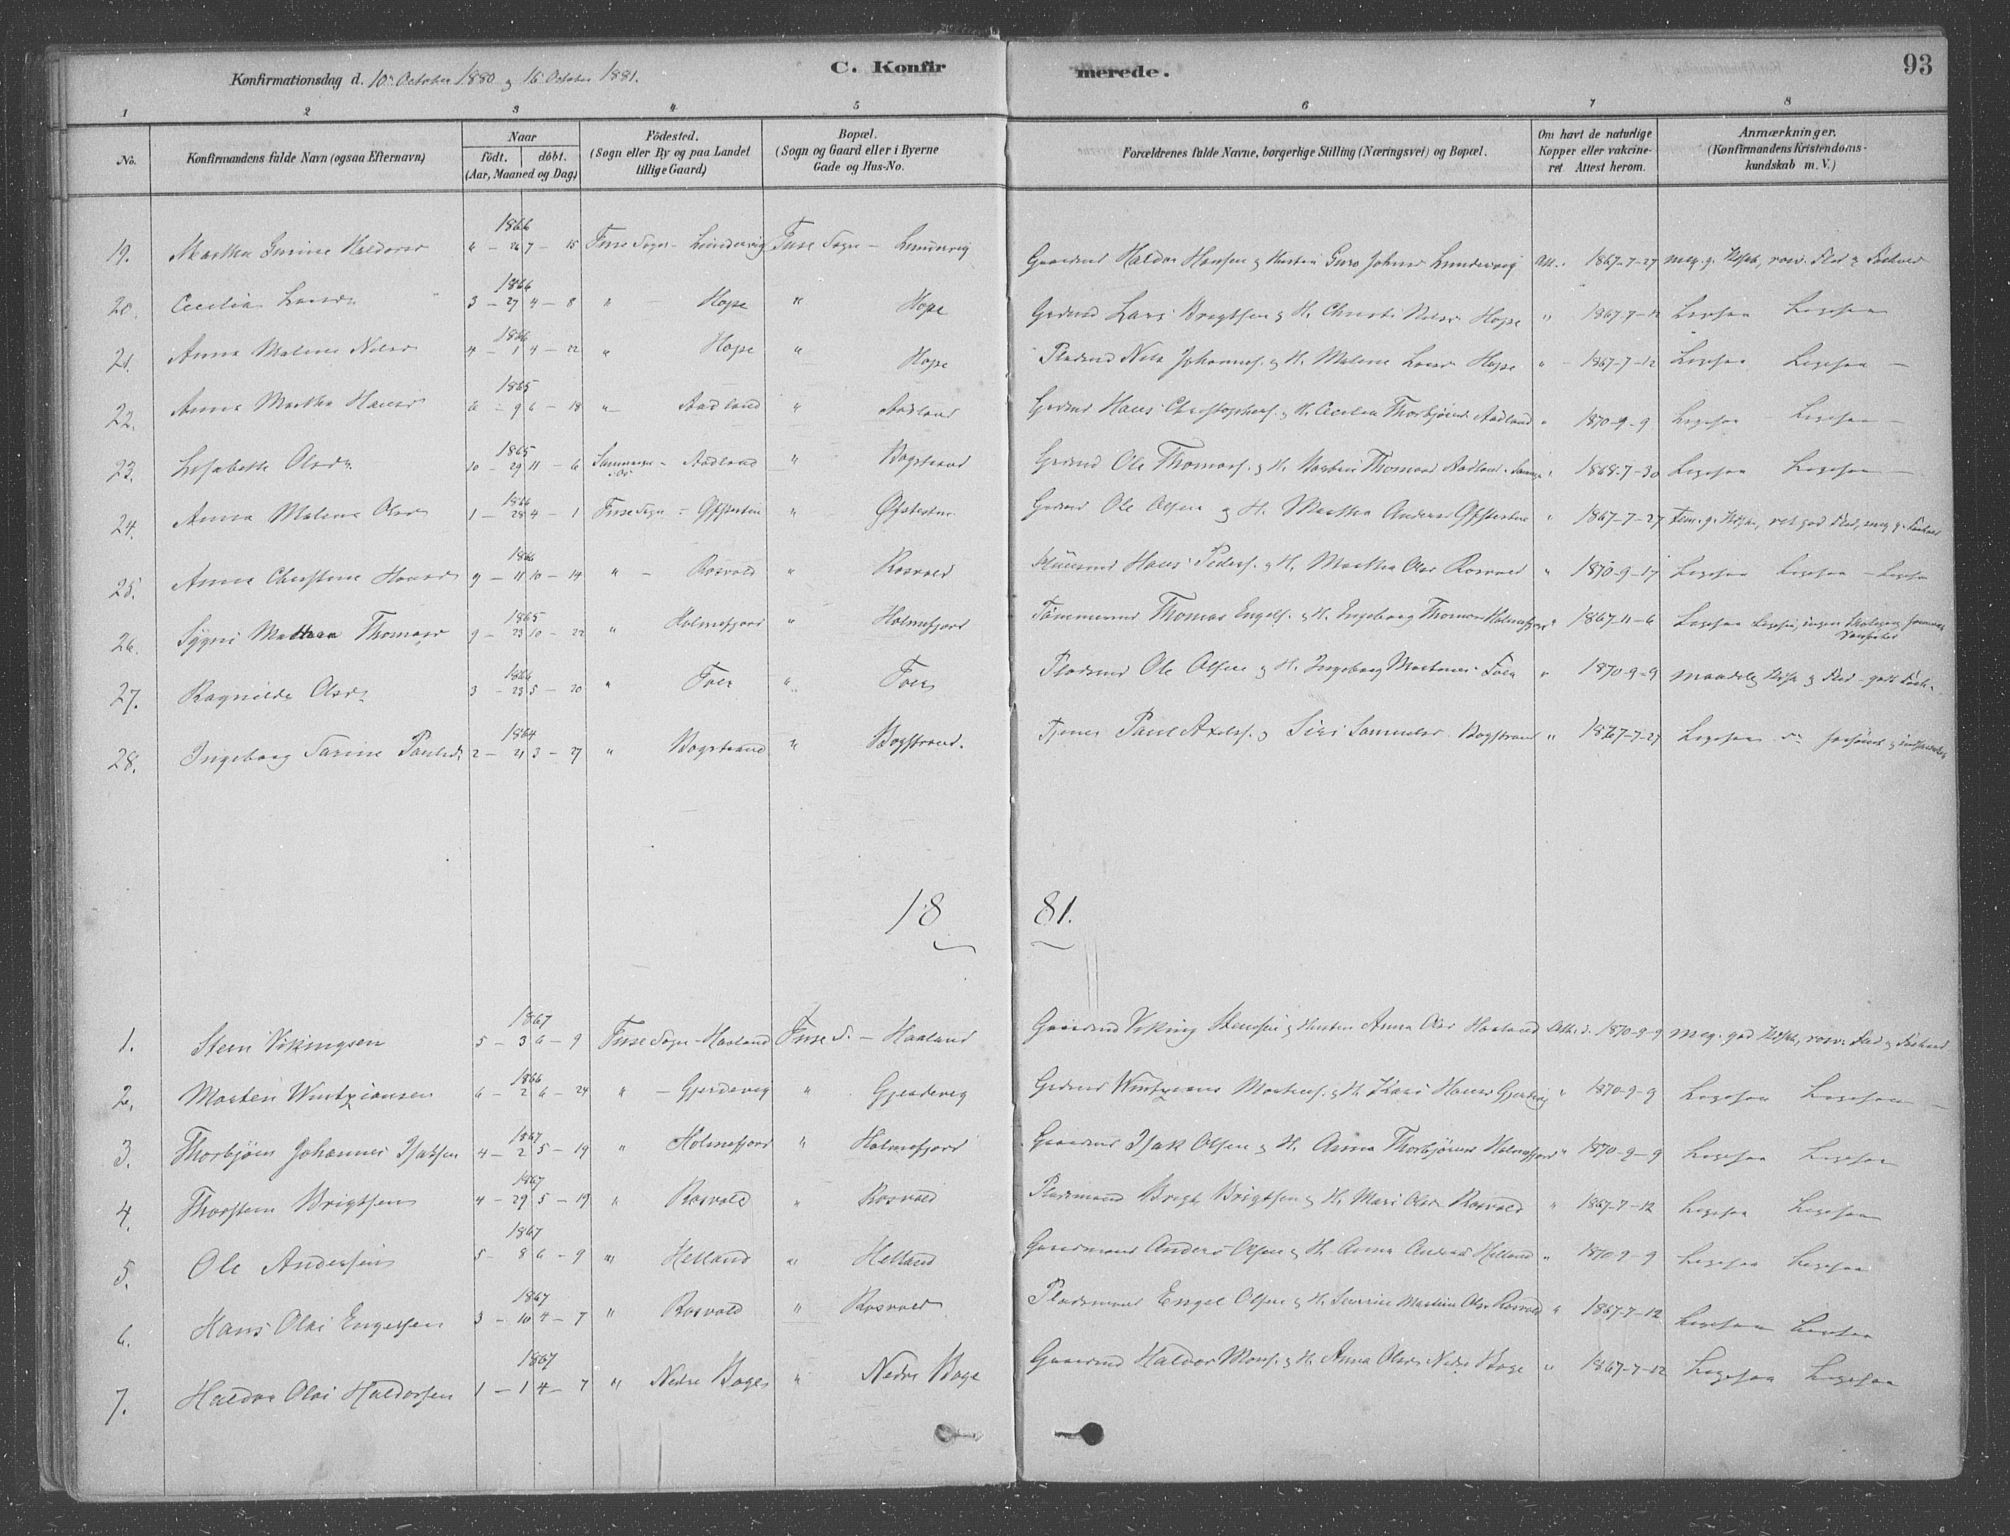 Konfirmationsdag d. 10de October 1880 og 16 October 1881.
C. Konfirmerede.
93
1 2 3 4 5 6 7 8
No. Konfirmandens fulde Navn (ogsaa Efternavn) Naar født. døbt. (Aar, Maaned og Dag) Födested. (Sogn eller By og paa Landet tillige Gaard) Bopæl. (Sogn og Gaard eller i Byerne Gade og Hus-No. Forældrenes fulde Navne, borgerlige Stilling (Næringsvei) og Bopæl. Om havt de naturlige Kopper eller vakcineret Attest herom. Anmærkninger. (Konfirmandens Kristendomskundskab m. V.)
19. Martha Haldorsd 1866 4 – 26 7 – 15 Fuse Sogn – Lundervig Fuse Sogn – Lundervig Gaardmd Haldor Hansen og Hustru Guro Johnsd Lundervig Att. 1867-7-27 meg. g. Kdsk, rosv. Flid og Forhold
20. Cecilia Larsdr 1866 3 – 27 4 – 8 " Hope " Hope Grdmd Lars Brigtsen og H. Christi Nilsd Hope " 1867-7-12 Ligesaa Ligesaa
21. Anna Malene Nilsd 1866 4 – 1 4 – 22 " Hope " Hope Pladsmd Nils Johannes. og H. Malene Larsd Hope " 1867-7-12 Ligesaa Ligesaa –
22. Anna Martha Hansd 1865 6 – 9 6 – 18 " Aadland " Aadland Grdmd Hans Christophers. og H. Cecilia Thorbjørnsd Aadland " 1870-9-9 Ligesaa – Ligesaa –
23. Lisabette Olsdr 1865 10 – 29 11 – 6 – Aadland " Bogstrand Grdmd Ole Thomass. og H. Thomasd Aadland " 1868-7-30 Ligesaa Ligesaa –
24. Anna Malene Olsd 1866 1 – 28 4 – 1 Fuse Sogn – " Grdmd Ole Olsen og H. Martha Andersd " 1867-7-27 Tem. g. Kdsk, ret god Flid, meg. g. Forhold
25. Anna Christine Hansd 1866 9 – 11 10 – 14 " – Rosvold " Rosvold Huusmd Hans Peders. og H. Martha Olsd Rosvold " 1870-9-17 Ligesaa Ligesaa – Ligesaa
26. Sygni Thomasd 1865 9 – 23 10 – 22 " Holmefjord " Holmefjord Tømmermd Thomas Engels. og H. Ingeborg Thomasd Holmefjord " 1867-11-6 Ligesaa Ligesaa, ingen
27. Ragnilde Olsdr 1866 3 – 23 5 – 20 " Foer " Foer Pladsmd Ole Olsen og H. Ingeborg Mortensd Foer " 1870-9-9 maadelig Kdsk og Flid – godt Forh.
28. Ingeborg Sarine Paulsdr 1864 2 – 21 3 – 27 " Bogstrand " Bogstrand. Tjener Paul Axels. og Siri Samuelsd Bogstrand " 1867-7-27 Ligesaa
1881.
1. Sten Vikingsen 1867 5 – 3 6 – 9 Fuse Sogn – Haaland Fuse S. – Haaland Gaardmd Viking Stensen og Hustru Anna Olsd Haaland Att. d. 1870-9-9 meg. god Kdsk, rosv. Flid og Forhold
2. Morten Wintzensen 1866 6 – 2 6 – 24 " – Gjerdevig " Gjerdevig Grdmd Mortens. og H. Kari Hansd Gjerdevig " 1870-9-9 Ligesaa Ligesaa –
3. Thorbjørn Johannes Isaksen 1867 4 – 2 5 – 19 " Holmefjord " Holmefjord Gaardmd Isak Olsen og H. Anna Thorbjørnsd Holmefjord " 1870-9-9 Ligesaa Ligesaa
4. Thorsten Brigtsen 1867 4 – 29 5 – 19 " Rosvold " Rosvold Pladsmand Brigt Brigtsen og H. Mari Olsdr Rosvold " 1867-7-12 Ligesaa Ligesaa
5. Ole Andersen 1867 5 – 8 6 – 9 " Helland " Helland Gaardmand Anders Olsen og H. Anna Helland " 1870-9-9 Ligesaa Ligesaa
6. Hans Olai Engelsen 1867 3 – 10 4 – 7 " Rosvold " Rosvold Pladsmand Engel Olsen og H. Olsd Rosvold " 1867-7-12 Ligesaa Ligesaa
7. Haldor Olai Haldorsen 1867 1 – 1 4 – 7 " Nedre Boge " Nedre Boge Gaardmd Haldor Mons. og H. Anna Olsd Nedre Boge " 1867-7-12 Ligesaa Ligesaa